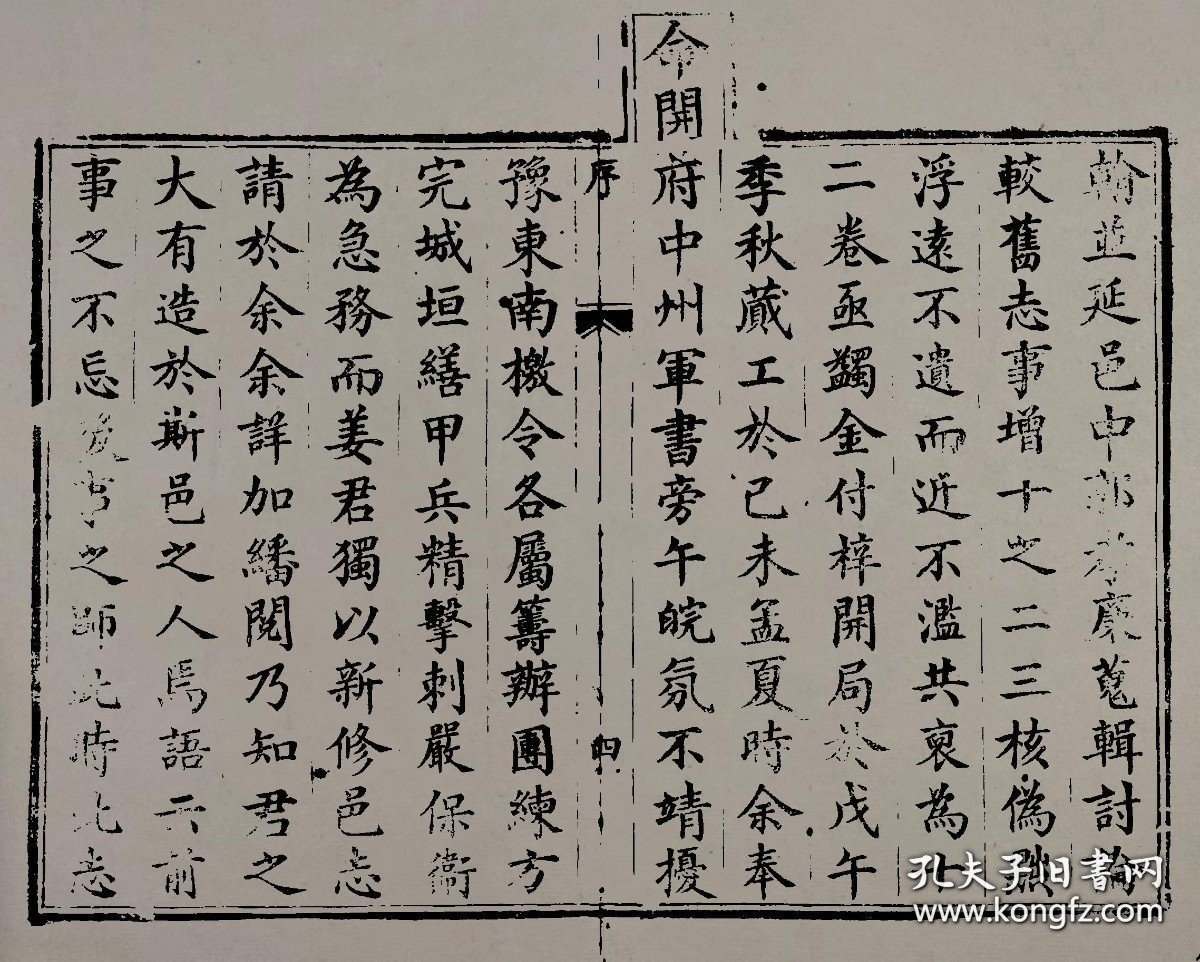 翰並延邑中孝廉蒐輯討論
較舊志事增十之二三核偽黜
浮遠不遺而近不濫共裒為十
二卷亟蠲金付梓開局於戊午
季秋蕆工於己未孟夏時余奉
命開府中州軍書旁午皖氛不靖擾
序
四
豫東南檄令各屬籌辦團練方
完城垣繕甲兵精擊刺嚴保衛
為急務而姜君獨以新修邑志
請於余余詳加繙閱乃知君之
大有造於斯邑之人焉語云前
事之不忘後事之師此時此志
孔夫子旧书网
www.kongfz.com